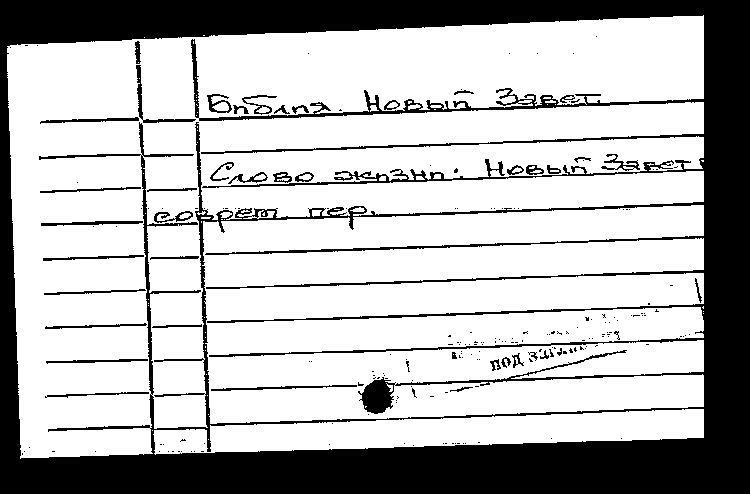 Библия. Новый Завет.
Слово жизни: Новый Завет в
соврем пер.
под заглав